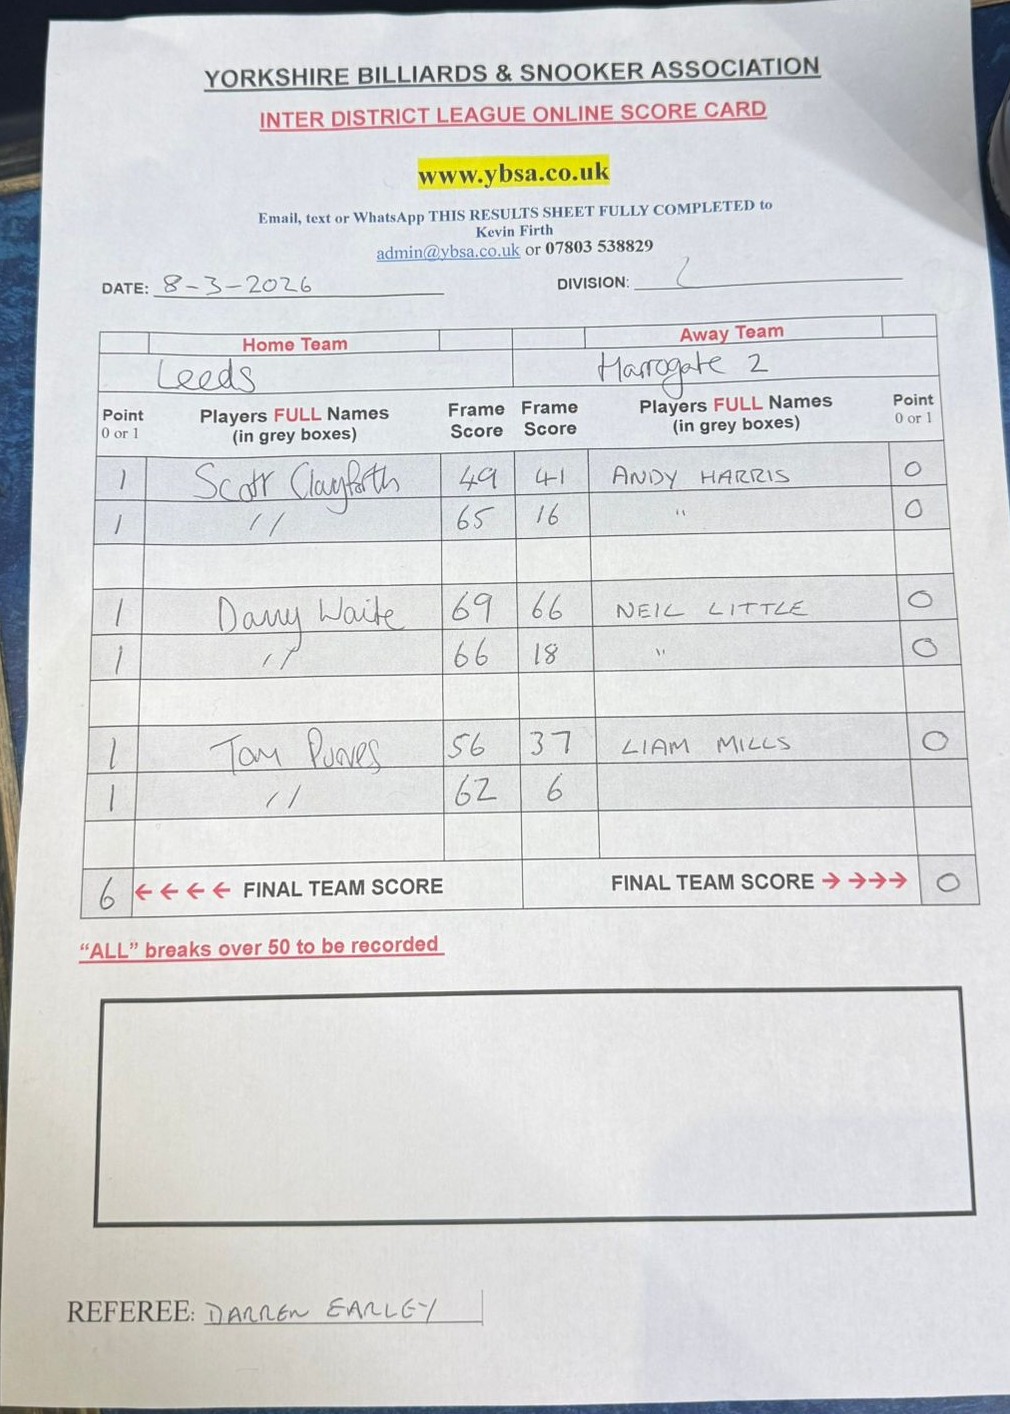 YORKSHIRE BILLIARDS & SNOOKER ASSOCIATION
INTER DISTRICT LEAGUE ONLINE SCORE CARD
www.ybsa.co.uk
Email, text or WhatsApp THIS RESULTS SHEET FULLY COMPLETED to
Kevin Firth
admin@ybsa.co.uk or 07803 538829
DATE: 8-3-2026 DIVISION:
Home Team Away Team
Leeds Harrogate 2
Point Players FULL Names Frame Frame Players FULL Names Point
0 or 1 (in grey boxes) Score Score (in grey boxes) 0 or 1
1 Scott 49 41 ANDY HARRIS 0
1 " 65 16 " 0
1 Danny Waite 69 66 NEIL LITTLE 0
1 " 66 18 " 0
1 Tom 56 37 LIAM MILLS 0
1 " 62 6
6 ←←←← FINAL TEAM SCORE FINAL TEAM SCORE →→→→ 0
“ALL” breaks over 50 to be recorded
REFEREE: DARREN EARLEY